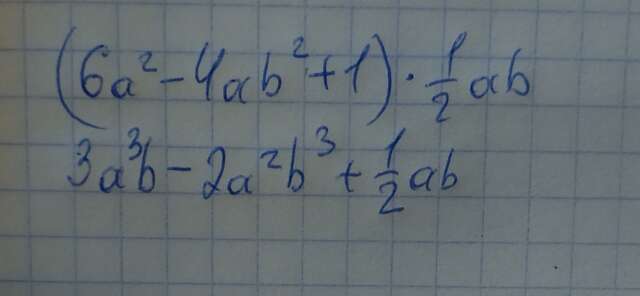 (6a² - 4ab² + 1) · 1/2 ab
3a³b - 2a²b³ + 1/2 ab